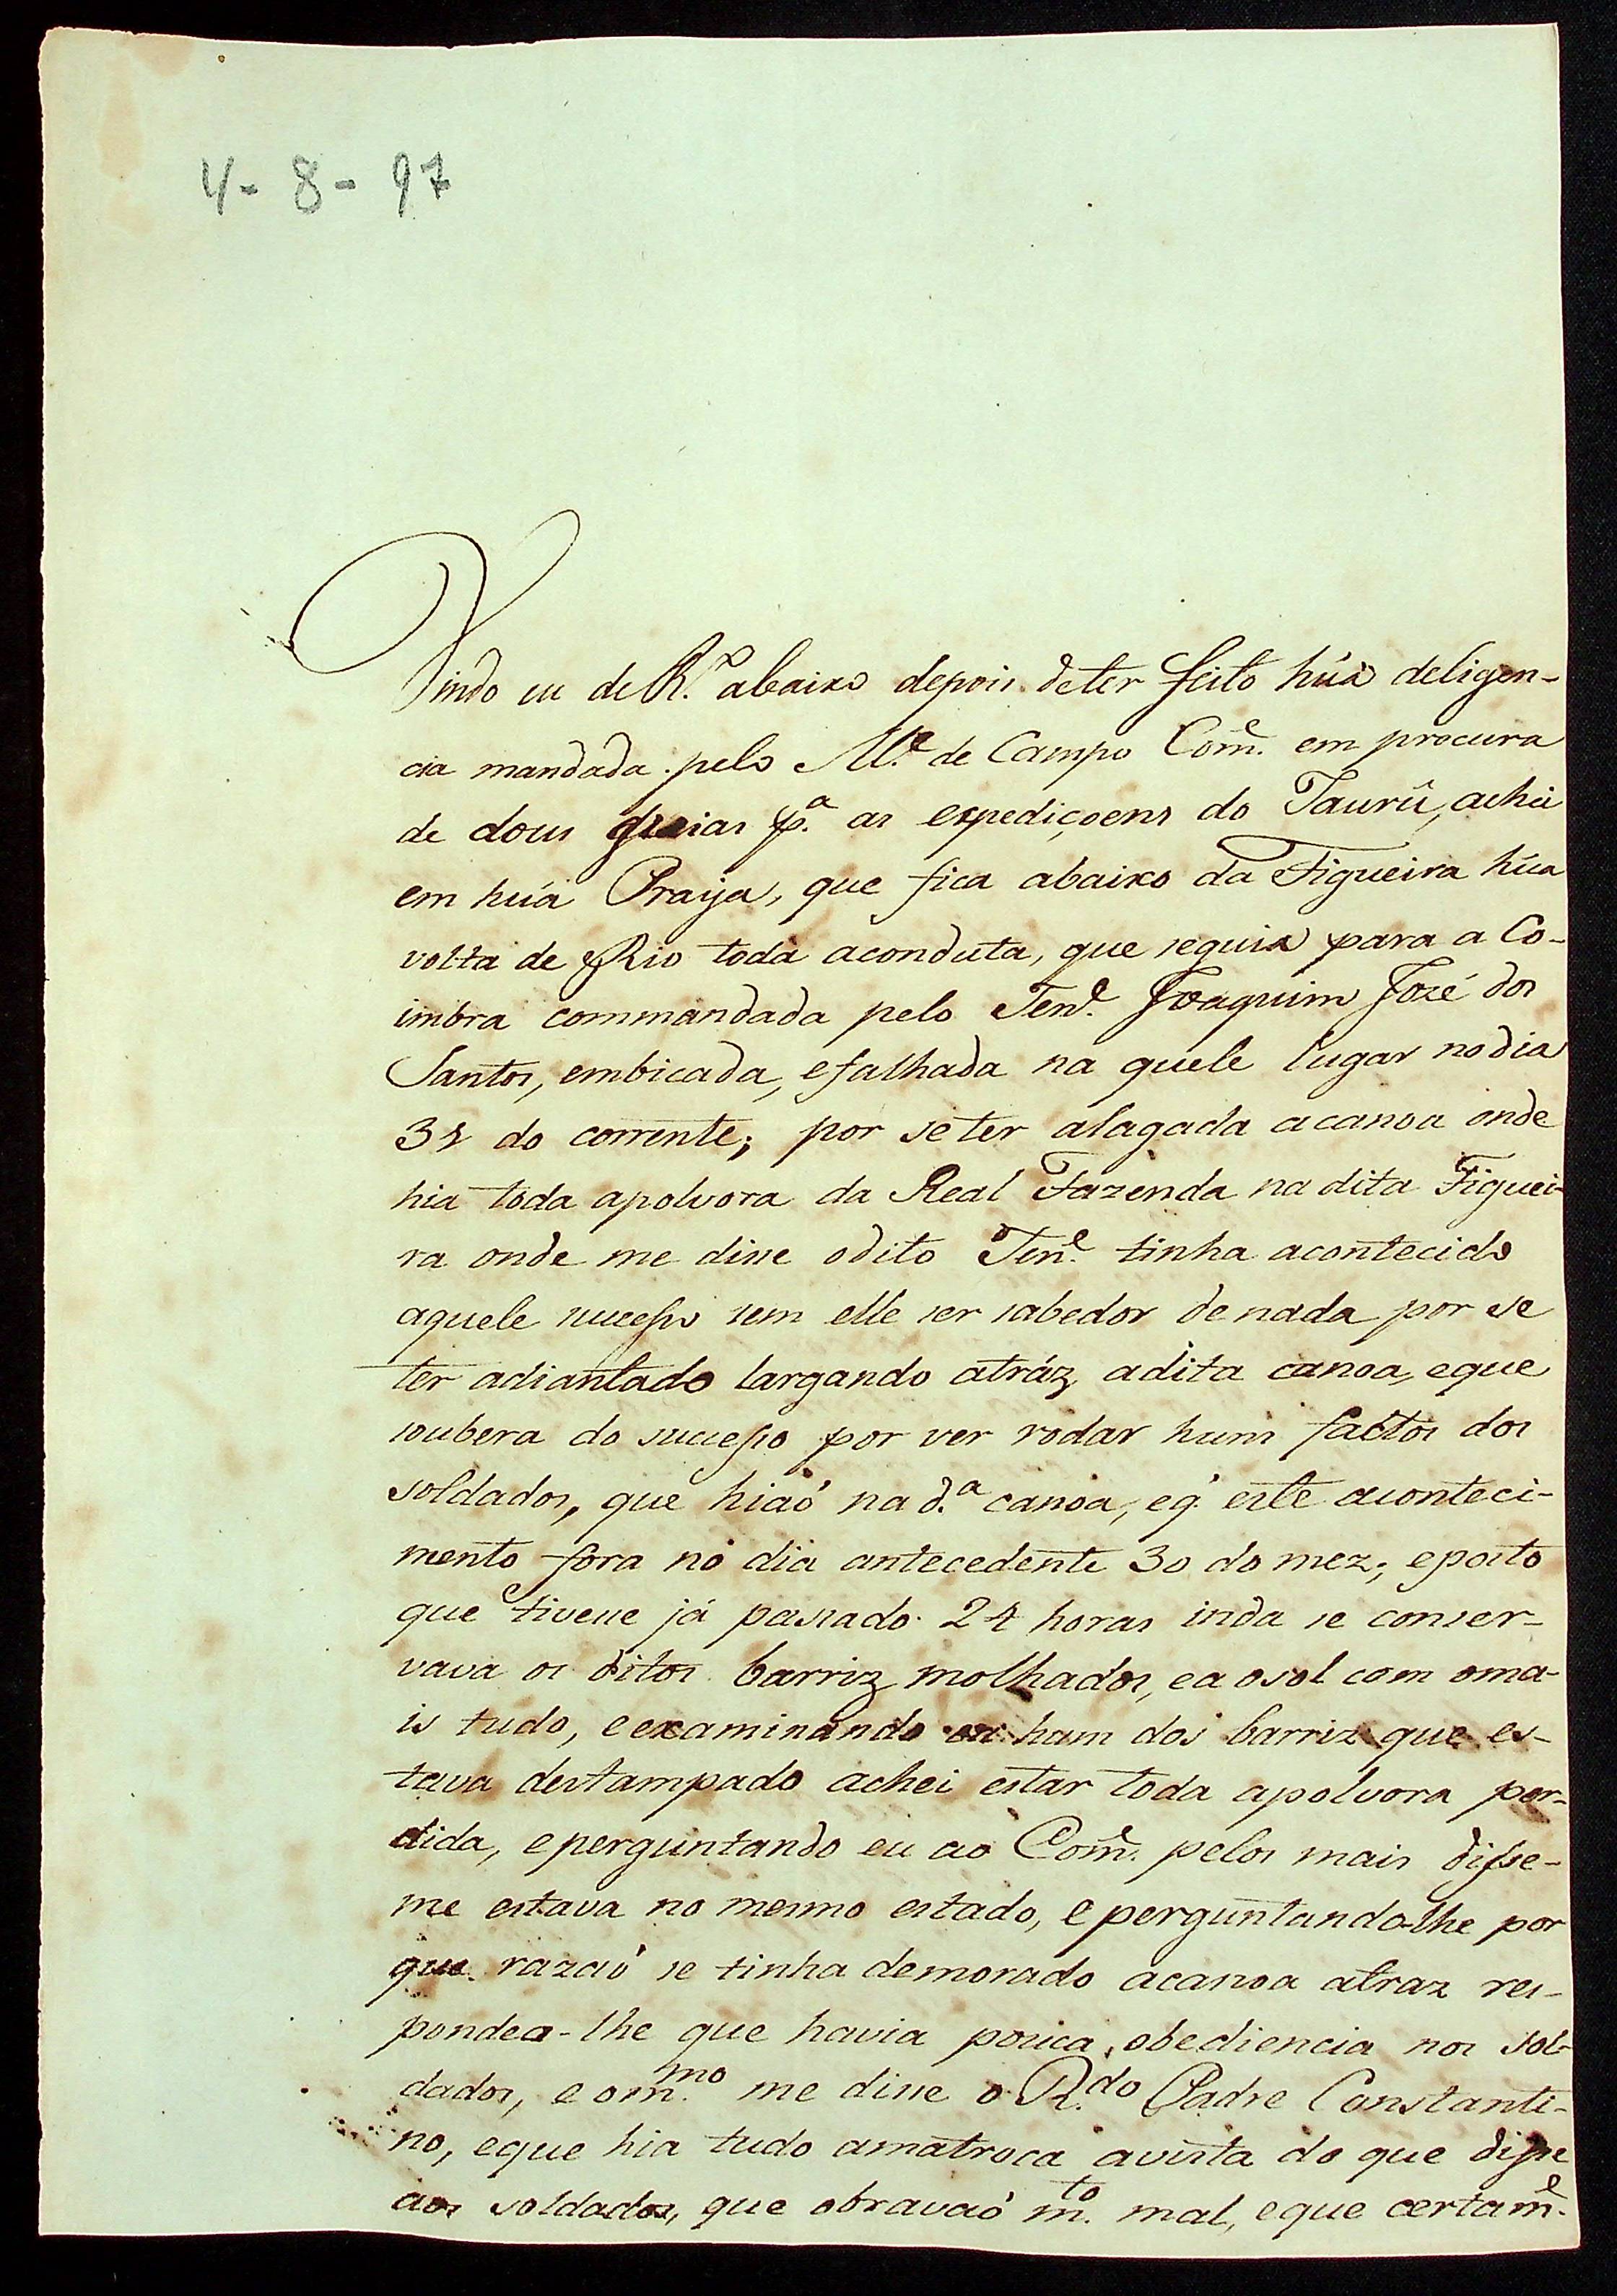 4-8-97
Vindo eu de R.º abaixo depois deter feito húa deligen-
cia mandada pelo M.e de Campo Com.e em procura
de dous guias p.a as expediçoens do Taurû, achei
em húa Praija, que fica abaixo da Figueira húa
volta de Rio toda aconduta, que seguia para a Co-
imbra commandada pelo Ten.e Joaquim Jozé dos
Santos, embicada, efalhada na quele lugar nodia
31 do corrente; por seter alagada acanoa onde
hia toda apolvora da Real Fazenda na dita Figuei-
ra onde me disse odito Ten.e tinha acontecido
aquele sucesso sem elle ser sabedor denada por se
ter adiantado largando atráz adita canoa, eque
soubera do sucesso por ver rodar huns factos dos
soldados, que hiaõ na d.a canoa, eq' este aconteci-
mento fora no dia antecedente 30 do mez; eposto
que tivesse já passado 24 horas inda se conser-
vava os ditos barriz molhados, ea osol com oma-
is tudo, eexaminando eu hum dos barriz que es-
tava destampado achei estar toda apolvora per-
dida, eperguntando eu ao Com.e pelos mais disse-
me estava no mesmo estado, e perguntando-lhe por
que razaõ se tinha demorado acanoa atraz res-
pondeo-lhe que havia pouca obediencia nos sol-
dados, e om.mo me disse o R.do Padre Constanti-
no, eque hia tudo amatroca avista do que disse
aos soldados, que obravaõ m.to mal, eque certam.e